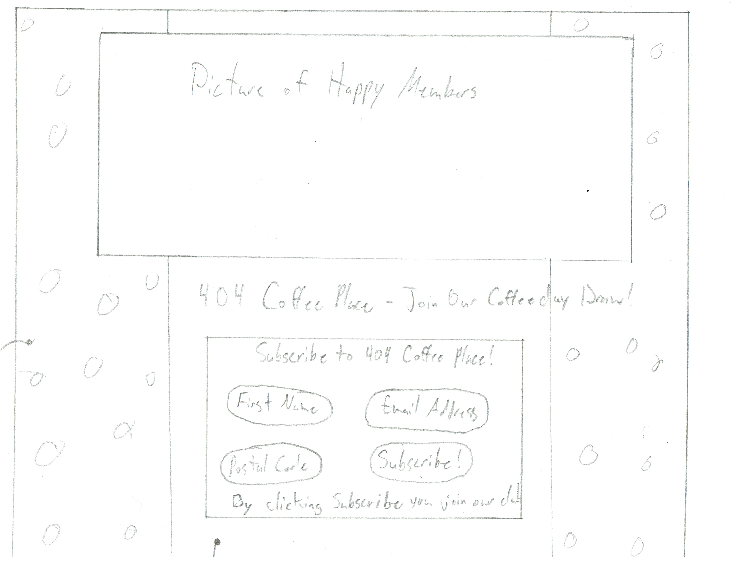 Picture of Happy Members
404 Coffee Place - Join Our Coffee day Draw!
Subscribe to 404 Coffee Place!
First Name
Email Address
Postal Code
Subscribe!
By clicking Subscribe you join our club